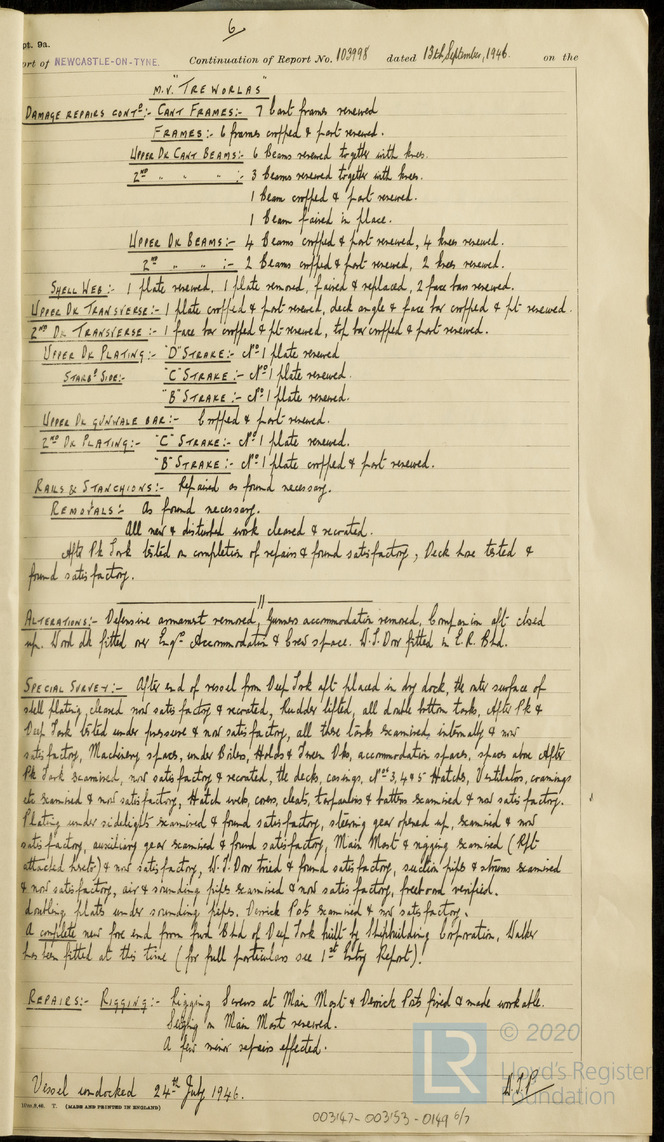 6
pt. 9a.
ort of NEWCASTLE-ON-TYNE. Continuation of Report No. 103998 dated 13th September, 1946. on the
M.V. "TREWORLAS"
DAMAGE REPAIRS CONTD:- CANT FRAMES:- 7 Cant frames renewed
FRAMES:- 6 frames cropped & part renewed.
UPPER DK CANT BEAMS:- 6 Beams renewed together with knees.
2ND " " " :- 3 beams renewed together with knees.
1 beam cropped & part renewed.
1 Beam faired in place.
UPPER DK BEAMS:- 4 beams cropped & part renewed, 4 knees renewed.
2ND " " :- 2 Beams cropped & part renewed, 2 knees renewed.
SHELL WEB:- 1 plate renewed, 1 plate removed, faired & replaced, 2 face bars renewed.
UPPER DK TRANSVERSE:- 1 plate cropped & part renewed, deck angle & face bar cropped & pt renewed.
2ND DK TRANSVERSE:- 1 face bar cropped & pt renewed, top bar cropped & part renewed.
UPPER DK PLATING:- "D" STRAKE:- No 1 plate renewed
STARBD SIDE:- "C" STRAKE:- No 1 plate renewed.
"B" STRAKE:- No 1 plate renewed.
UPPER DK GUNWALE BAR:- Cropped & part renewed.
2ND DK PLATING:- "C" STRAKE:- No 1 plate renewed.
"B" STRAKE:- No 1 plate cropped & part renewed.
RAILS & STANCHIONS:- Repaired as found necessary.
REMOVALS:- As found necessary.
All new & disturbed work cleaned & recoated.
After Pk Tank tested on completion of repairs & found satisfactory, Deck hose tested &
found satisfactory.
//
ALTERATIONS:- Defensive armament removed, Gunners accommodation removed, Companion aft closed
up. Wood dk fitted over Engrs Accommodation & Crew space. W.T. Door fitted in E.R. Bhd.
SPECIAL SURVEY:- After end of vessel from Deep Tank aft placed in dry dock, the outer surface of
shell plating, cleaned now satisfactory & recoated, Rudder lifted, all double bottom tanks, After Pk &
Deep Tank tested under pressure & now satisfactory, all these tanks examined internally & now
satisfactory, Machinery spaces, under Boilers, Holds & Tween Dks, accommodation spaces, spaces above After
Pk Tank examined, now satisfactory & recoated, the decks, casings, Nos 3, 4 & 5 Hatches, Ventilators, coamings
etc examined & now satisfactory, Hatch webs, covers, cleats, tarpaulins & battens examined & now satisfactory.
Plating under sidelights examined & found satisfactory, steering gear opened up, examined & now
satisfactory, auxiliary gear examined & found satisfactory, Main Mast & rigging examined (Rpt
attached hereto) & now satisfactory, W.T. Door tried & found satisfactory, suction pipes & strums examined
& now satisfactory, air & sounding pipes examined & now satisfactory, freeboard verified.
doubling plates under sounding pipes. Derrick Posts examined & now satisfactory.
A complete new fore end from fwd Bhd of Deep Tank built by Shipbuilding Corporation, Walker
has been fitted at this time (for full particulars see 1st Entry Report).
REPAIRS:- RIGGING:- Rigging Screws at Main Mast & Derrick Posts freed & made workable.
Seizing on Main Mast renewed.
A few minor repairs effected.
Vessel undocked 24th July 1946.
(MADE AND PRINTED IN ENGLAND)
003147-003153-0149 6/7
LR
© 2020
Lloyd's Register
Foundation